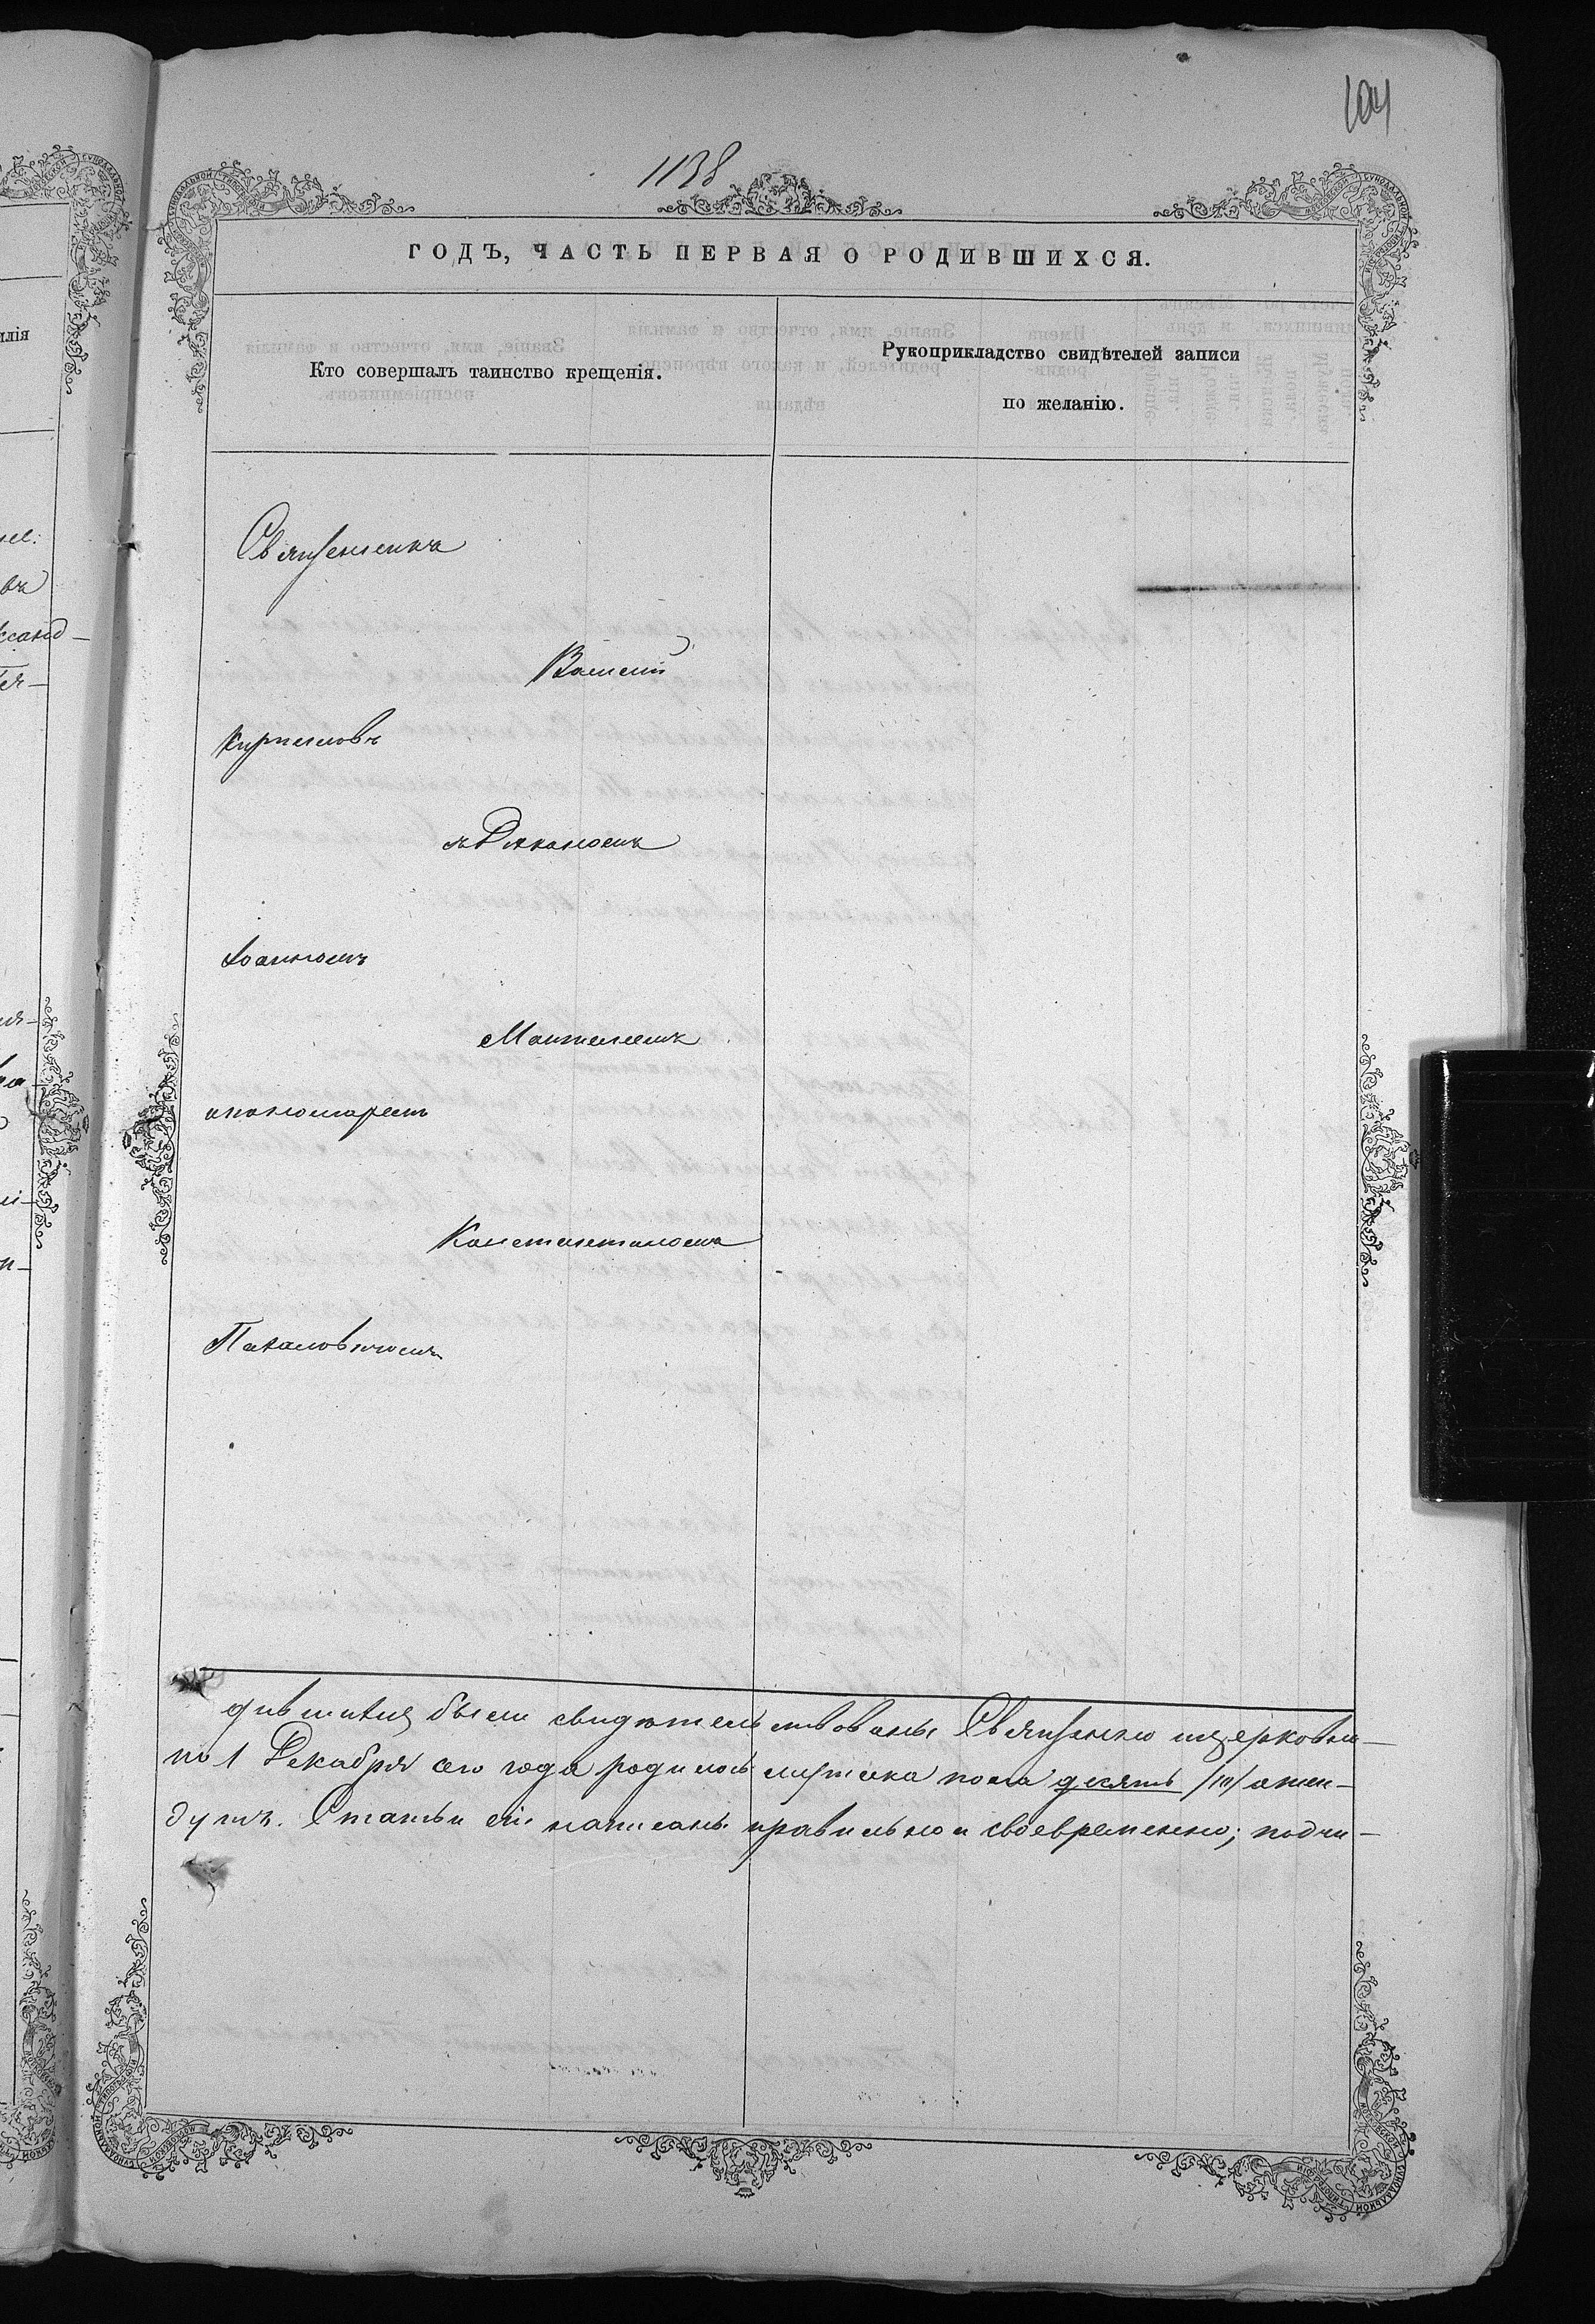 104
1138
ГОДЪ, ЧАСТЬ ПЕРВАЯ О РОДИВШИХСЯ.
Кто совершалъ таинство крещенія.
Рукоприкладство свидѣтелей записи
по желанію.
Священникъ
Василій
Кирилловъ
съ Діакономъ
Іоанномъ
и пономаремъ
Константиномъ
дившихся были свидѣтельствованы Священно и церковно-
по 1 Декабря сего года родилось мужска пола десять /10/ а жен-
душъ. Статьи сіи написаны правильно и своевременно; подчи-